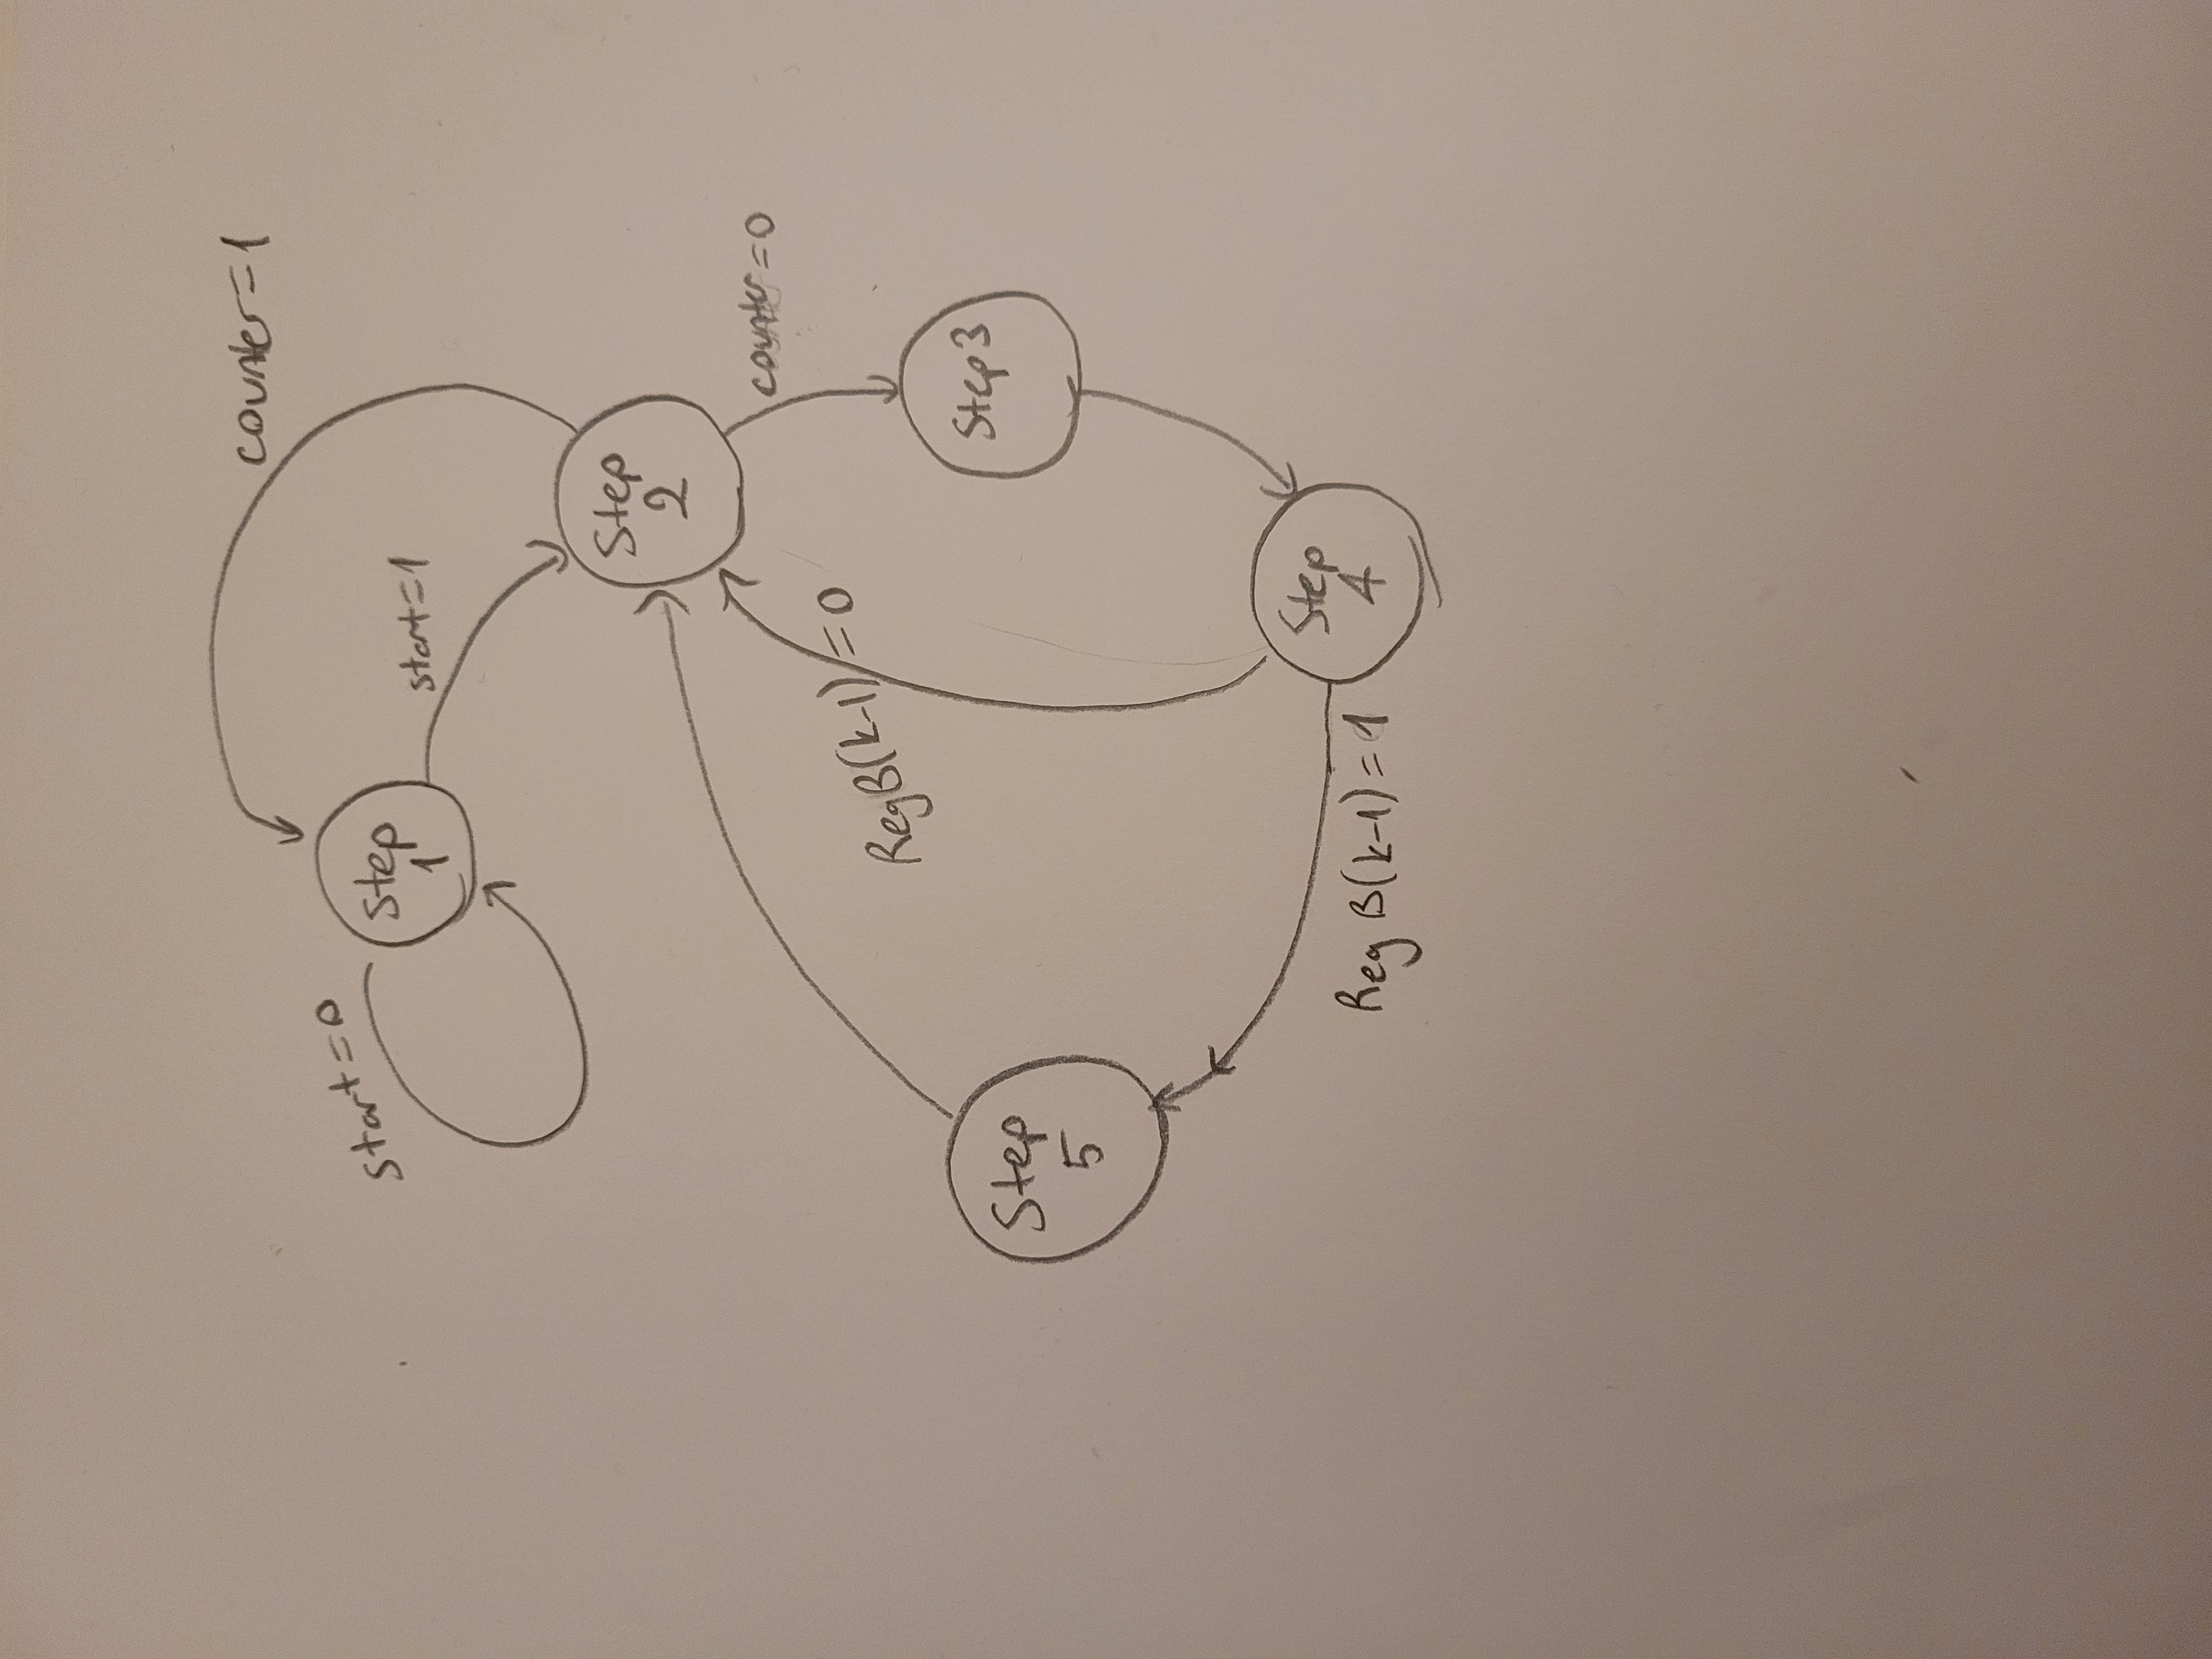 counter=1
start=0
Step
1
start=1
Step
2
counter=0
RegB(k-1)=0
Step3
Step
5
Step
4
Reg B(k-1)=1